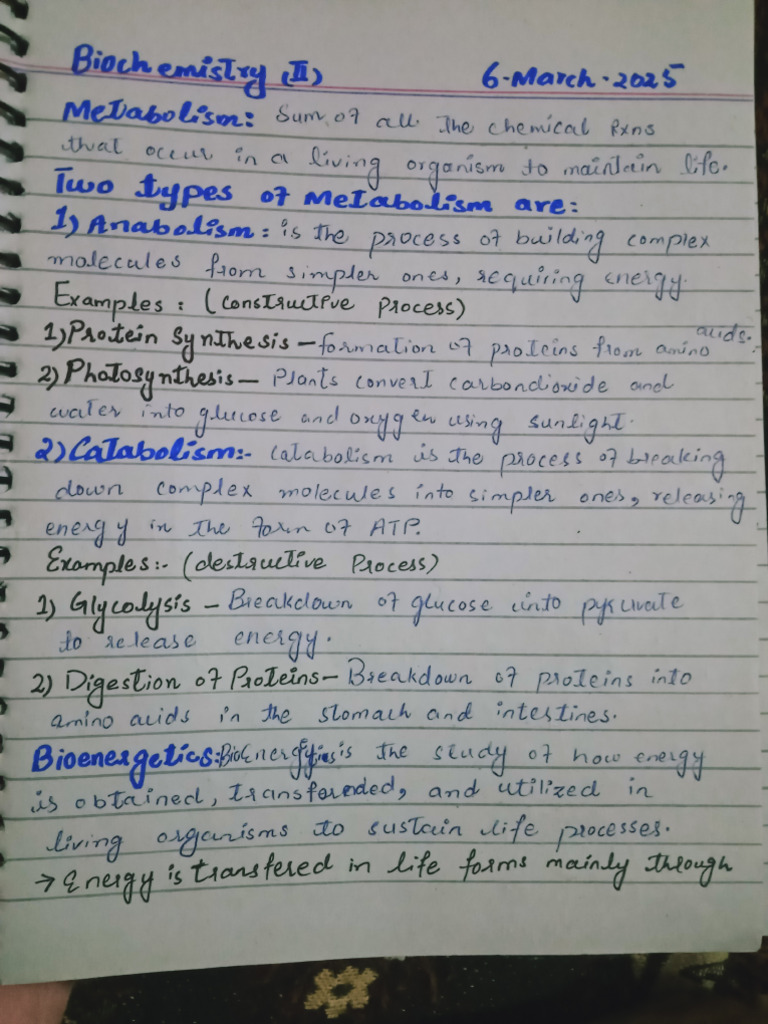 Biochemistry (II) 6-March-2025
Metabolism: Sum of all the chemical Rxns
that occur in a living organism to maintain life.
Two types of Metabolism are:
1) Anabolism: is the process of building complex
molecules from simpler ones, requiring energy.
Examples: (constructive process)
1) Protein Synthesis - formation of proteins from amino acids.
2) Photosynthesis - Plants convert carbondioxide and
water into glucose and oxygen using sunlight.
2) Catabolism:- Catabolism is the process of breaking
down complex molecules into simpler ones, releasing
energy in the form of ATP.
Examples:- (destructive Process)
1) Glycolysis - Breakdown of glucose into pyruvate
to release energy.
2) Digestion of Proteins - Breakdown of proteins into
amino acids in the stomach and intestines.
Bioenergetics: is the study of how energy
is obtained, and utilized in
living organisms to sustain life processes.
→ Energy is transfered in life forms mainly through